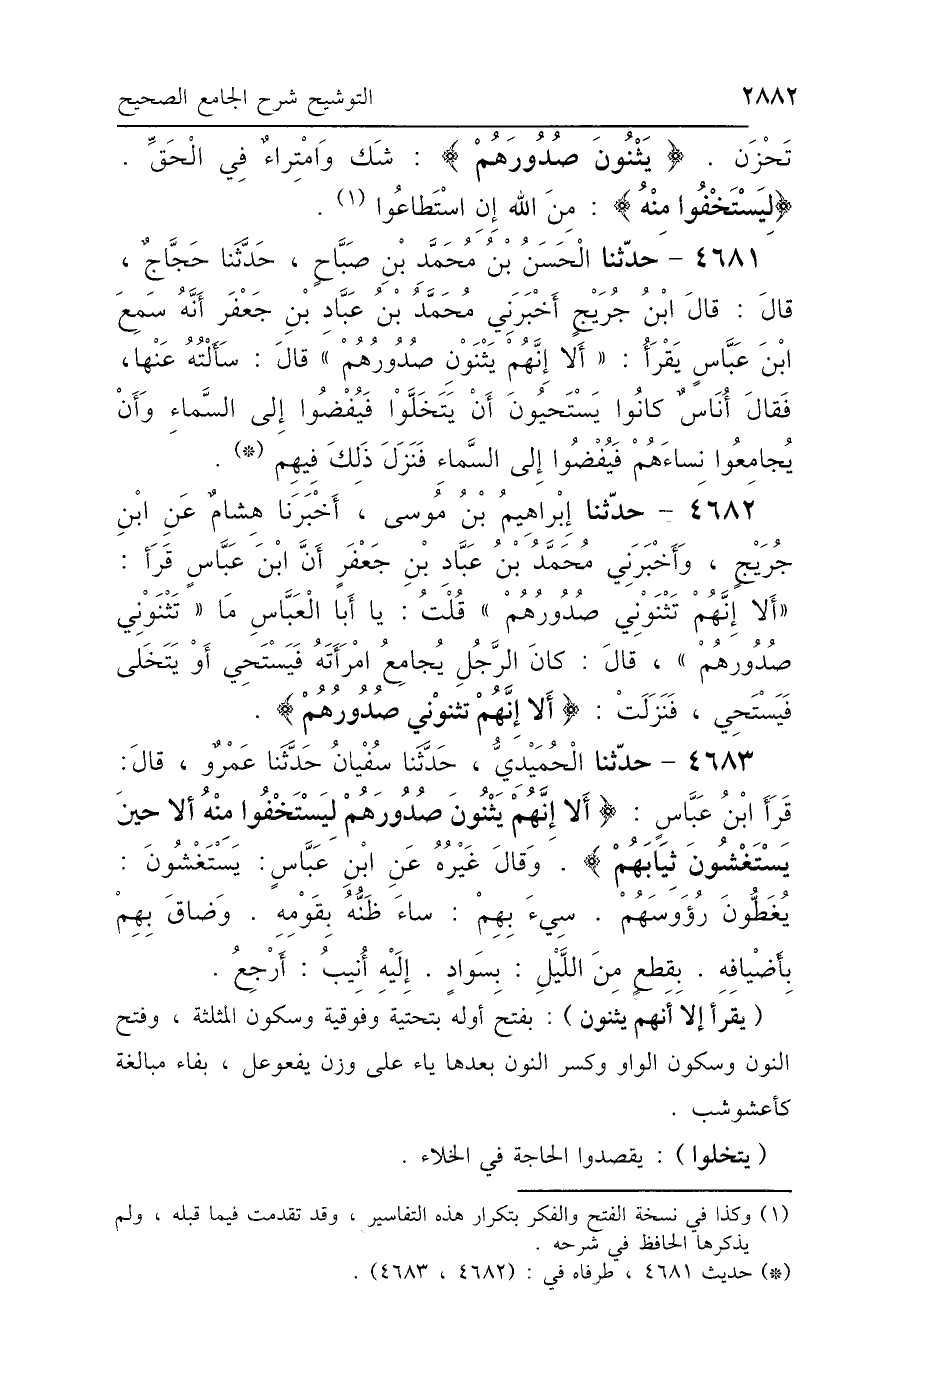 ٢٨٨٢ التوشيح شرح الجامع الصحيح
تَحْزَن . ﴿ يَثْنُونَ صُدُورَهُمْ ﴾ : شَك وَامْتِراءٌ فِي الْحَقِّ .
﴿لِيَسْتَخْفُوا مِنْهُ ﴾ : مِنَ الله إن اسْتَطاعُوا (١) .
٤٦٨١ - حدّثنا الْحَسَنُ بْنُ مُحَمَّدِ بْنِ صَبَّاحٍ ، حَدَّثَنَا حَجَّاجٌ ،
قالَ : قالَ ابْنُ جُرَيْجٍ أَخْبَرَنِي مُحَمَّدُ بْنُ عَبَّادِ بْنِ جَعْفَر أَنَّهُ سَمِعَ
ابْنَ عَبَّاسٍ يَقْرَأُ : « ألا إِنَّهُمْ يَثْنَوْنِ صُدُورُهُمْ » قالَ : سَأَلْتُهُ عَنْها،
فَقالَ أُنَاسٌ كانُوا يَسْتَحيُونَ أَنْ يَتَخَلَّوْا فَيُفْضُوا إلى السَّماءِ وَأَنْ
يُجامِعُوا نِساءَهُمْ فَيُفْضُوا إلى السَّماءِ فَنَزَلَ ذَلِكَ فِيهِم (*) .
٤٦٨٢ - حدّثنا إبْراهِيمُ بْنُ مُوسى ، أَخْبَرَنا هِشامٌ عَنِ ابْنِ
جُرَيْجٍ ، وَأَخْبَرَنِي مُحَمَّدُ بْنُ عَبَّادِ بْنِ جَعْفَرٍ أَنَّ ابْنَ عَبَّاسٍ قَرَأَ :
«أَلا إِنَّهُمْ تَثْنَوْنِي صُدُورُهُمْ » قُلْتُ : يا أبا الْعَبَّاسِ مَا « تَثْنَوْنِي
صُدُورهُمْ » ، قالَ : كانَ الرَّجُلِ يُجامِعُ امْرَأَتَهُ فَيَسْتَحِي أَوْ يَتَخَلى
فَيَسْتَحِي ، فَنَزَلَتْ : ﴿ أَلا إِنَّهُمْ تثنوْني صُدُورُهُمْ ﴾ .
٤٦٨٣ - حدّثنا الْحُمَيْدِيُّ ، حَدَّثَنَا سفْيانُ حَدَّثَنَا عَمْرٌو ، قالَ:
قَرَأَ ابْنُ عَبَّاسٍ : ﴿ أَلا إِنَّهُمْ يَثْنُونَ صُدُورَهُمْ لِيَسْتَخْفُوا مِنْهُ ألا حينَ
يَسْتَغْشُونَ ثِيَابَهُمْ ﴾ . وَقالَ غَيْرُهُ عَنِ ابْنِ عَبَّاسٍ: يَسْتَغْشُونَ :
يُغَطُّونَ رُؤُوسَهُمْ . سِيءَ بِهِمْ : ساءَ ظَنُّهُ بِقَوْمِهِ . وَضاقَ بِهِمْ
بِأَضْيافِهِ . بِقِطَعٍ مِنَ اللَّيْلِ : بِسَوادٍ . إِلَيْهِ أُنِيبُ : أَرْجِعُ .
( يقرأ إلا أنهم يثنون ) : بفتح أوله بتحتية وفوقية وسكون المثلثة ، وفتح
النون وسكون الواو وكسر النون بعدها ياء على وزن يفعوعل ، بفاء مبالغة
كأعشوشب .
( يتخلوا ) : يقصدوا الحاجة في الخلاء .
(١) وكذا في نسخة الفتح والفكر بتكرار هذه التفاسير ، وقد تقدمت فيما قبله ، ولم
يذكرها الحافظ في شرحه .
(*) حديث ٤٦٨١ ، طرفاه في : (٤٦٨٢ ، ٤٦٨٣) .